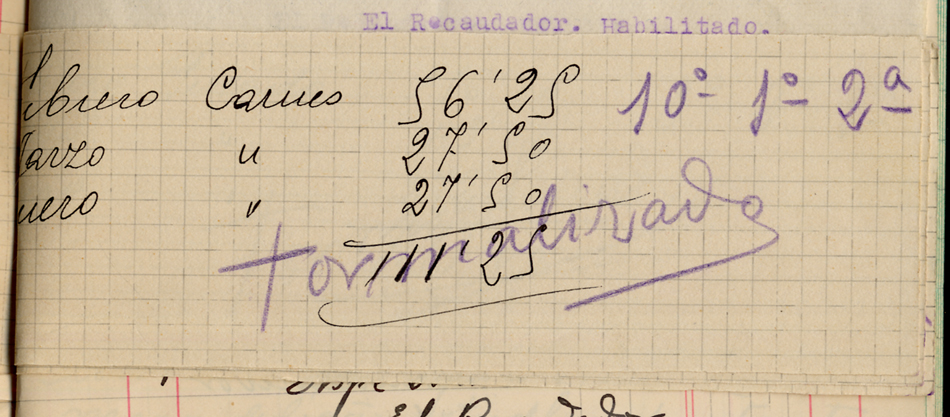 El Recaudador. Habilitado.
febrero Carnes 56'25 10º 1º 2ª
Marzo " 27'50
enero " 27'50
111'25
formalizado